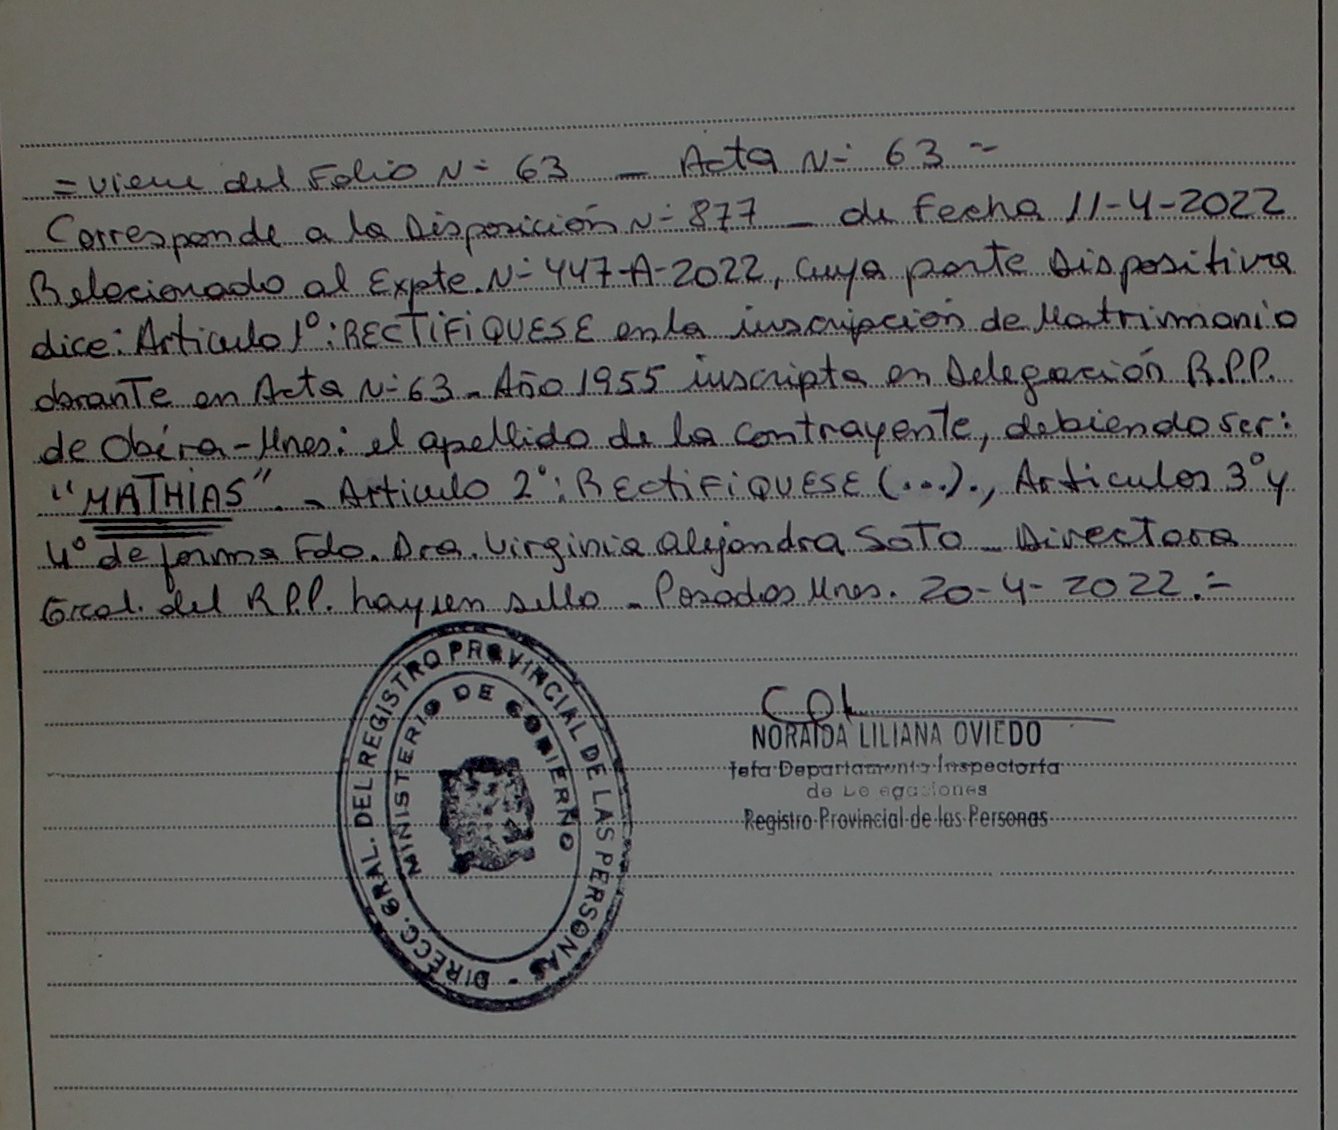 = viene del Folio N= 63 — Acta N= 63 ~
Corresponde a la Disposición N=877 — de Fecha 11-4-2022
Relacionado al Expte. N=447-A-2022, cuya parte Dispositiva
dice: Articulo 1°: RECTIFIQUESE en la inscripción de Matrimonio
obrante en Acta N=63 - Año 1955 inscripta en Delegación R.P.P.
de Obera-Mnes: el apellido de la contrayente, debiendo ser:
"MATHIAS". - Articulo 2°: RECTIFIQUESE (...)., Articulos 3° y
4° de forma Fdo. Dra. Virginia Alejandra Soto - Directora
Gral. del R.P.P. hay un sello - Posadas Mnes. 20-4-2022.=
DIRECC. GRAL. DEL REGISTRO PROVINCIAL DE LAS PERSONAS -
MINISTERIO DE GOBIERNO
NORAIDA LILIANA OVIEDO
Jefa Departamento Inspectoría
de Delegaciones
Registro Provincial de las Personas